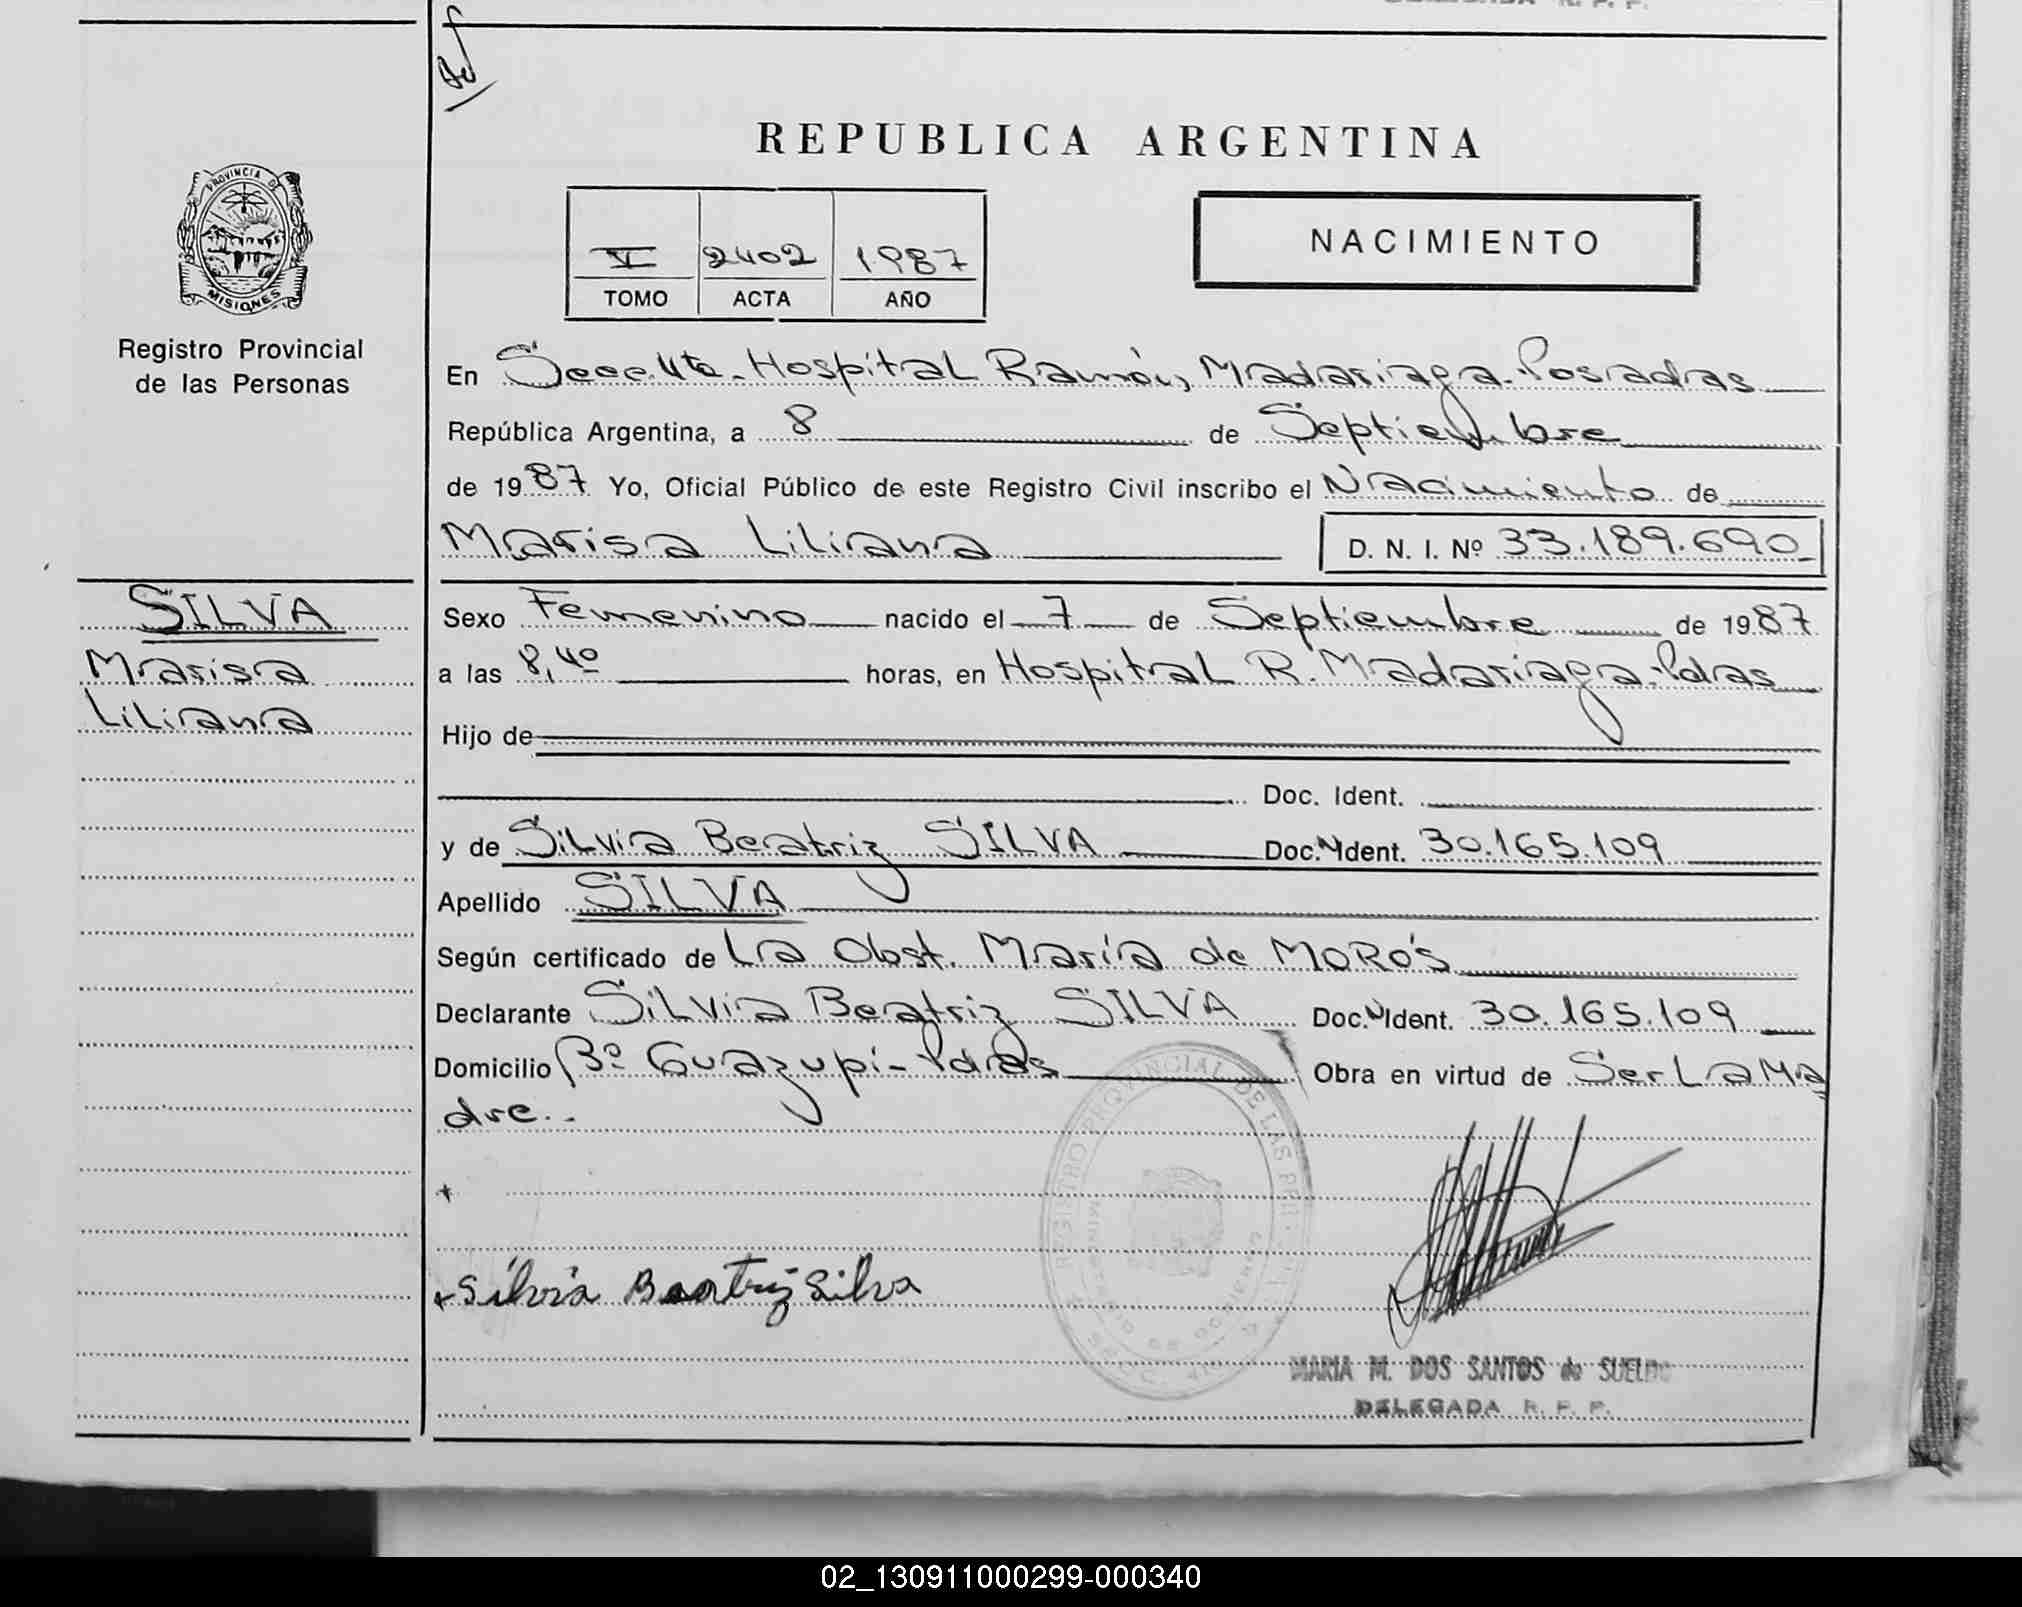 REPUBLICA ARGENTINA
PROVINCIA DE
MISIONES
Registro Provincial
de las Personas
V 2402 1987
TOMO ACTA AÑO
NACIMIENTO
En Secc. 4ta. Hospital Ramón, Madariaga. Posadas
República Argentina, a 8 de Septiembre
de 1987 Yo, Oficial Público de este Registro Civil inscribo el Nacimiento de
Marisa Liliana D. N. I. Nº 33.189.690
SILVA
Marisa
Liliana
Sexo Femenino nacido el 7 de Septiembre de 1987
a las 8,40 horas, en Hospital R. Madariaga. Pdas
Hijo de
Doc. Ident.
y de Silvia Beatriz SILVA Doc. N Ident. 30.165.109
Apellido SILVA
Según certificado de La Obst. María de MORO's
Declarante Silvia Beatriz SILVA Doc. N Ident. 30.165.109
Domicilio Bº Guazupi - Pdas Obra en virtud de Ser La Ma
dre.
REGISTRO PROVINCIAL DE LAS PER
MINISTERIO DE GOBIERNO
SECC. 4ta
Silvia Beatriz Silva
MARIA M. DOS SANTOS de SUELDO
DELEGADA R. P. P.
02_130911000299-000340